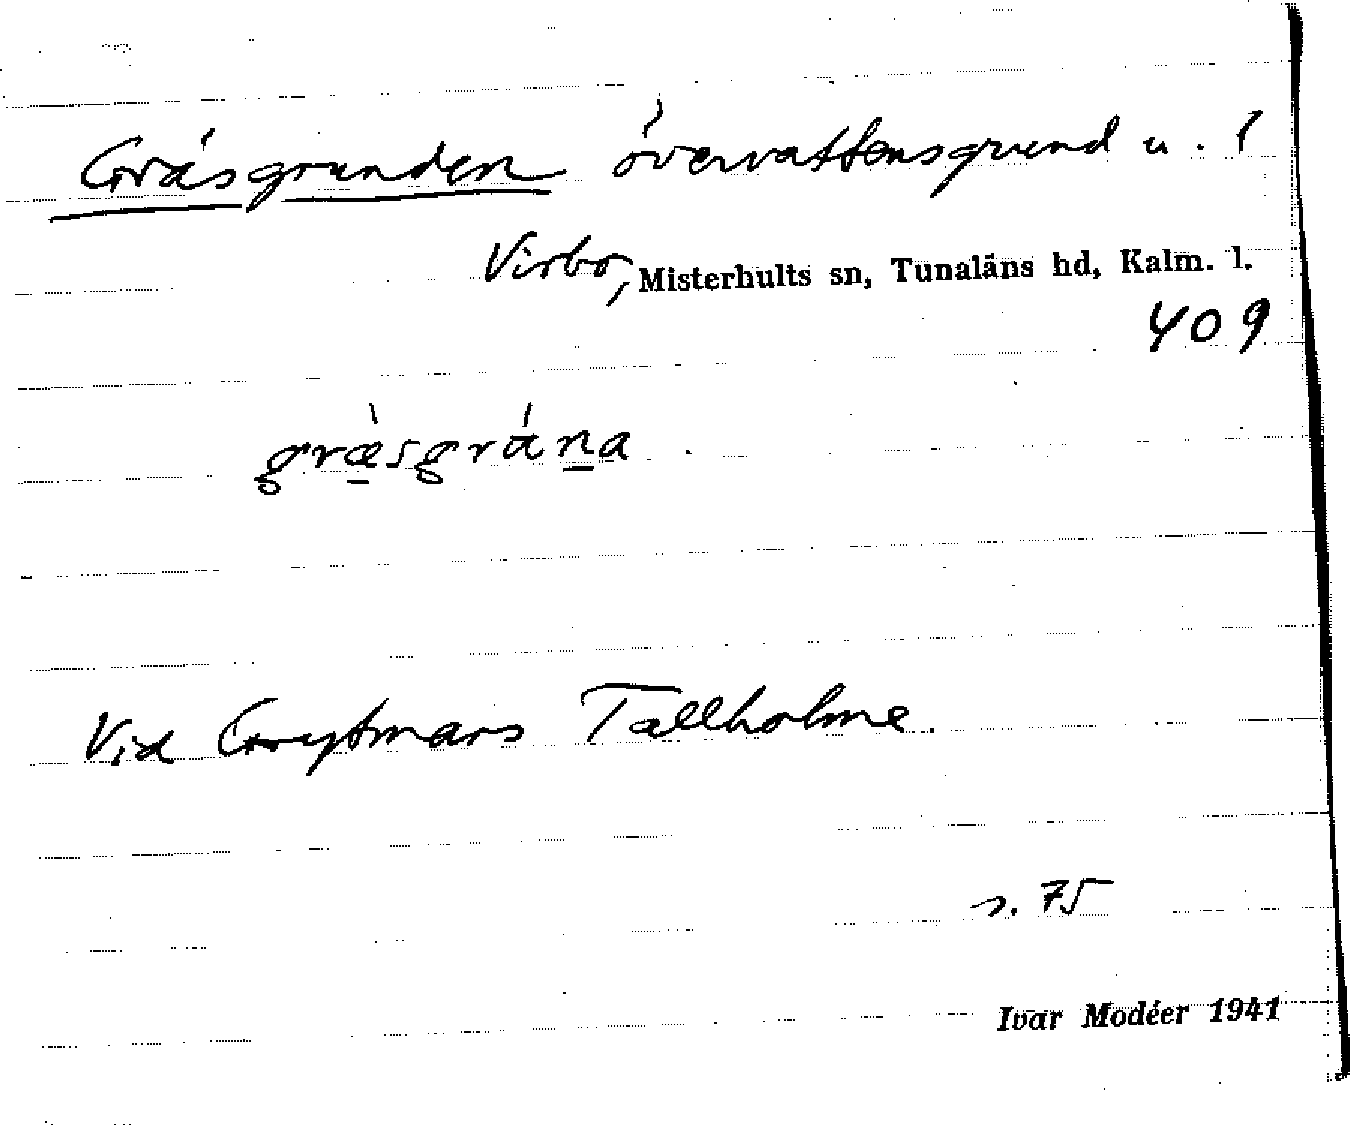 Gräsgrunden övervattensgrund u.
Virbo, Misterhults sn, Tunaläns hd, Kalm. l.
409
græ̀sgrána
Vid Grytmars Tallholme.
s. 75
Ivar Modéer 1941